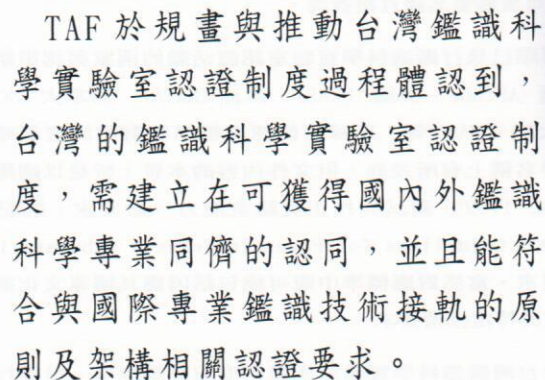 TAF 於規畫與推動台灣鑑識科
學實驗室認證制度過程體認到，
台灣的鑑識科學實驗室認證制
度，需建立在可獲得國內外鑑識
科學專業同儕的認同，並且能符
合與國際專業鑑識技術接軌的原
則及架構相關認證要求。